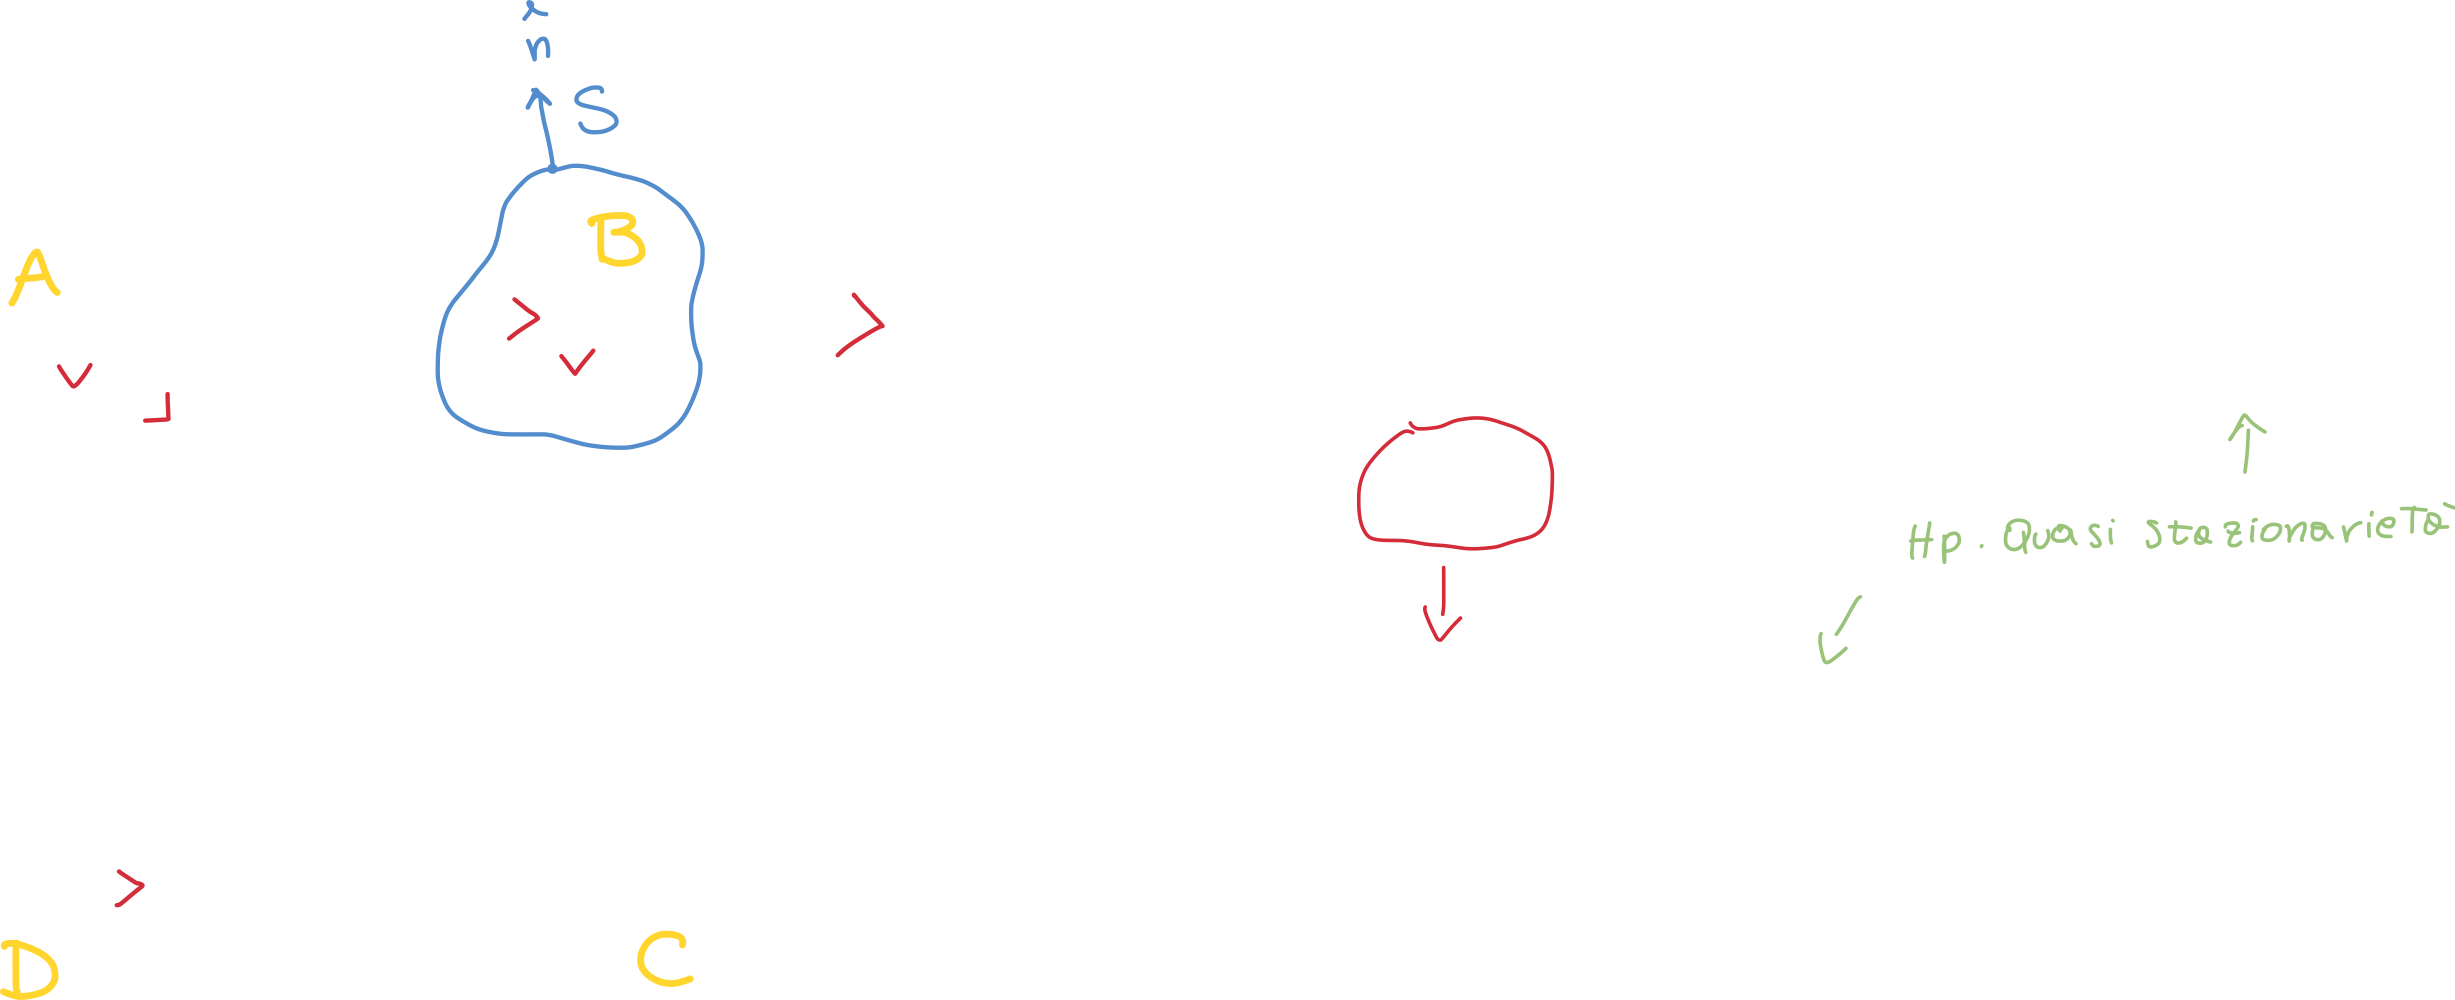 n
S
B
A
Hp. Quasi stazionarietà
D
C